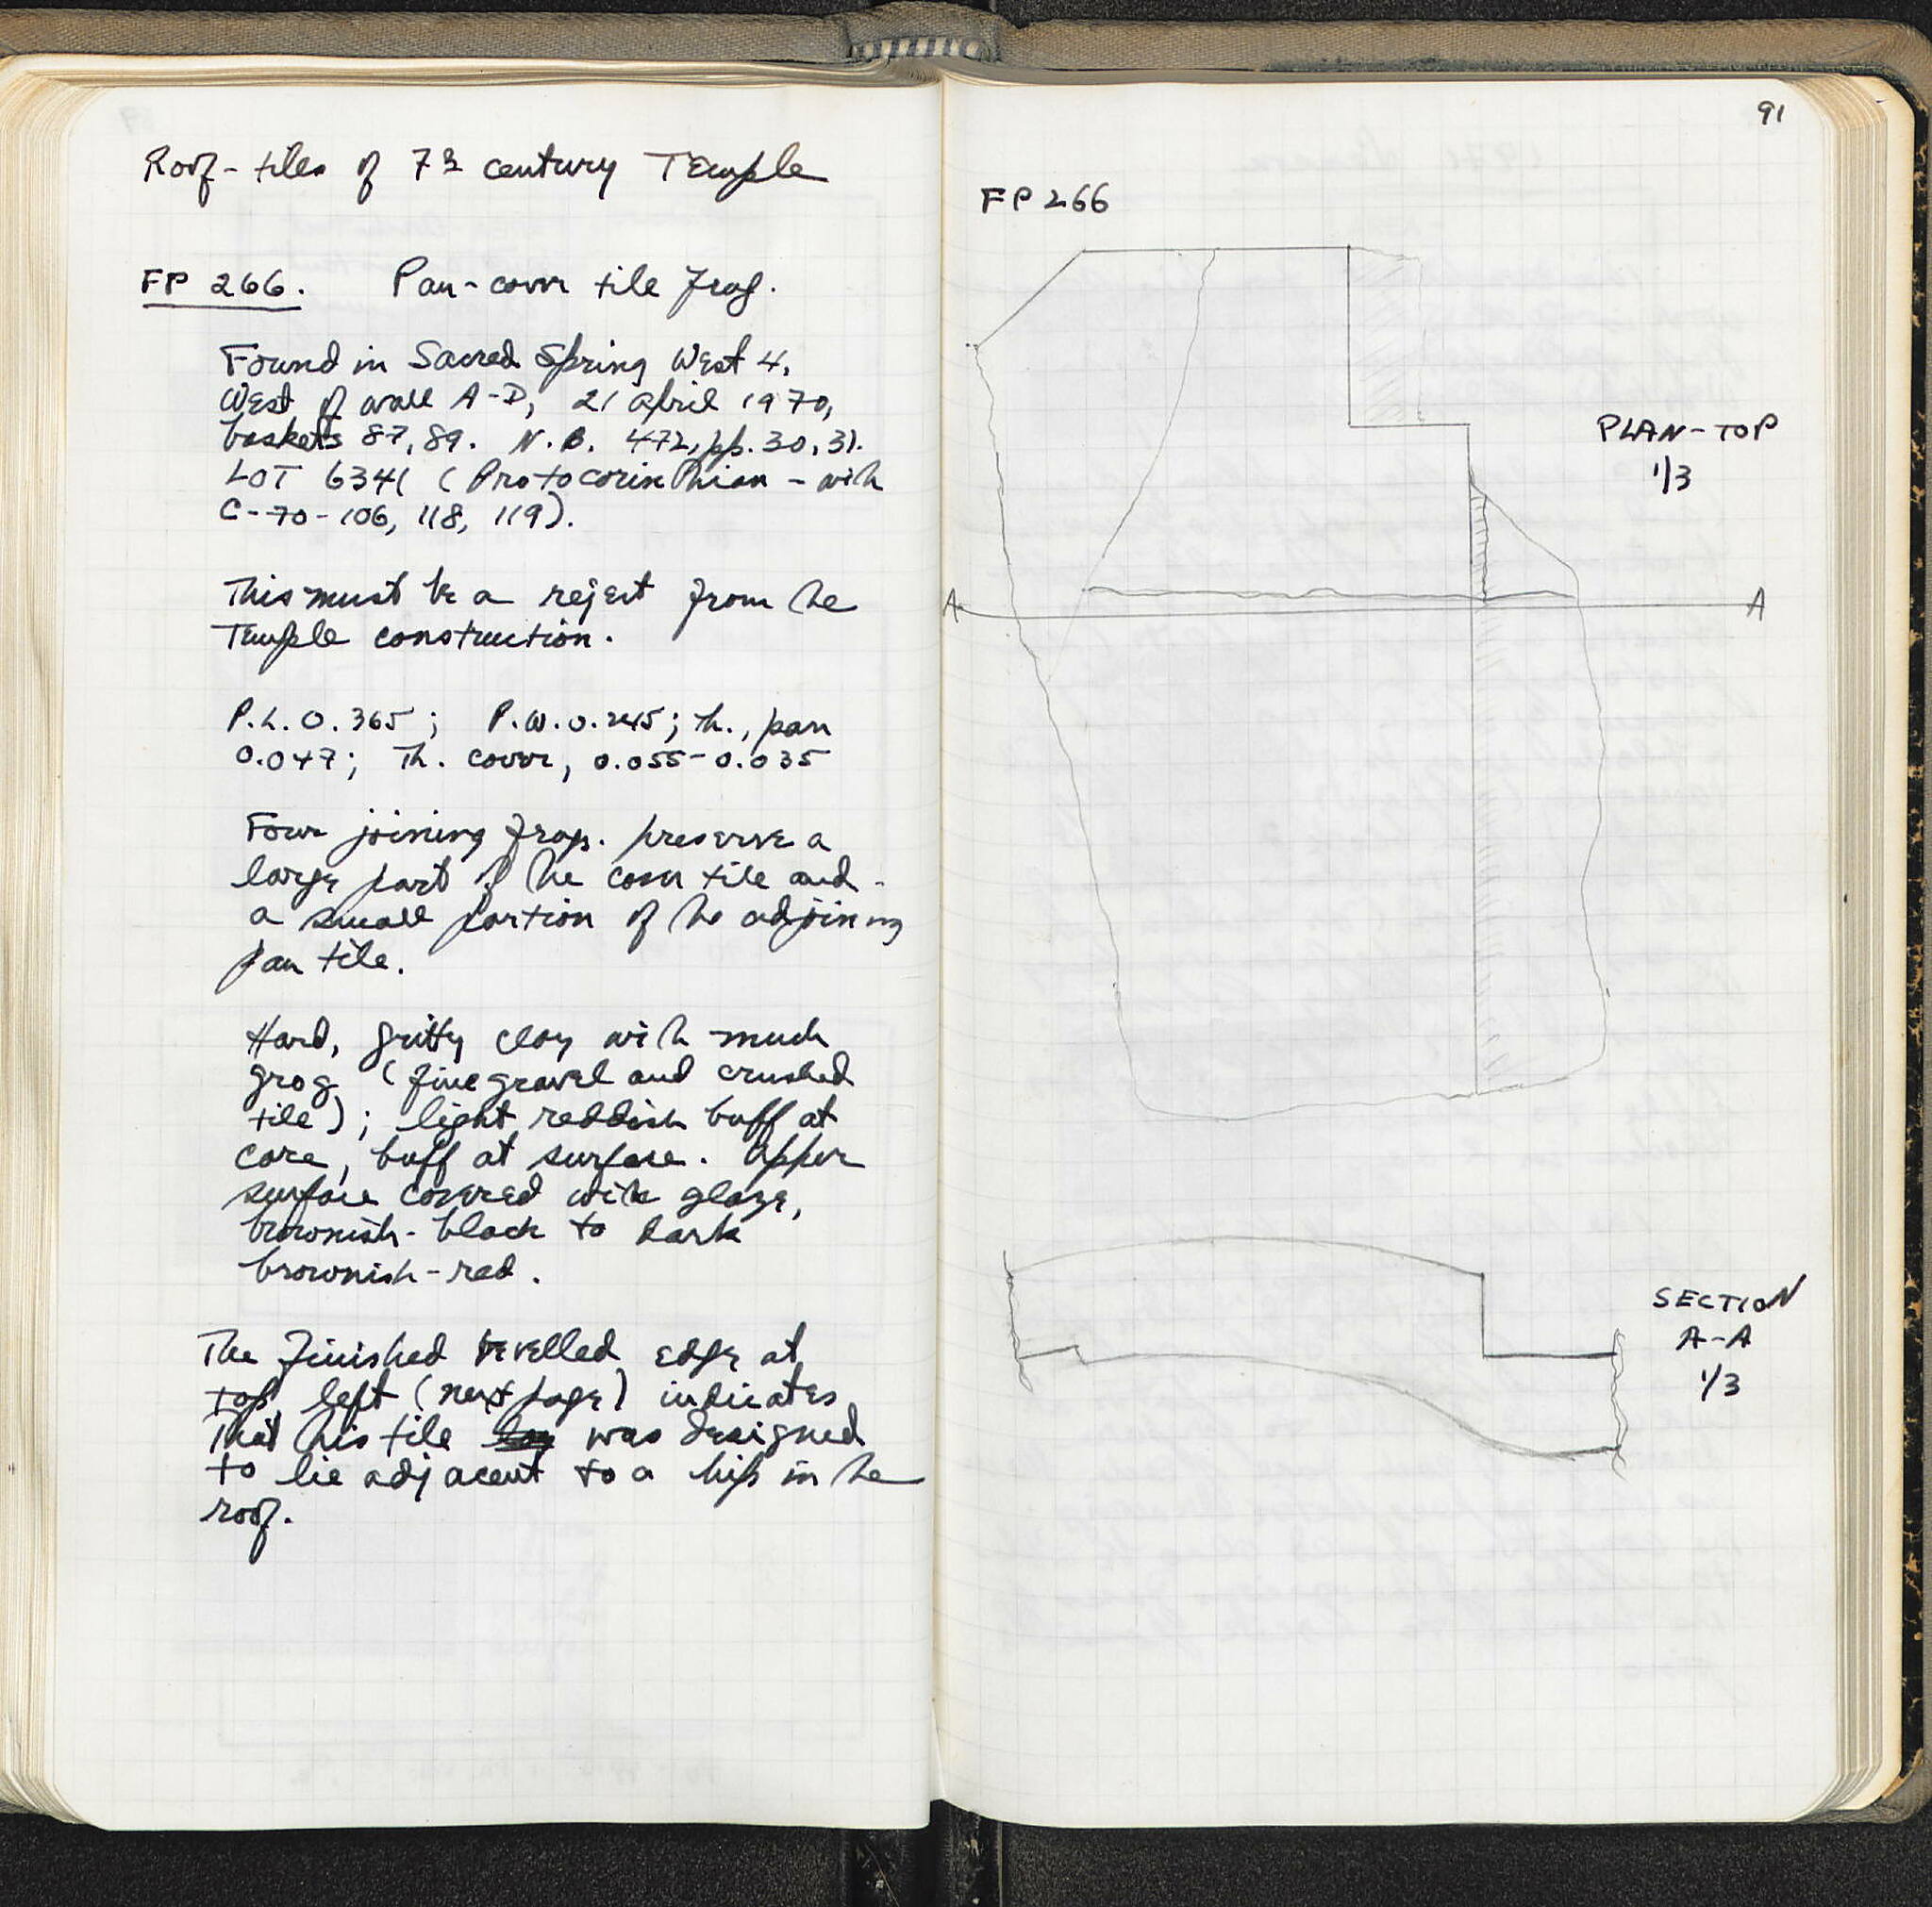 Roof-tiles of 7th century Temple
FP 266. Pan-cover tile frag.
Found in Sacred Spring West 4,
West of wall A-D, 21 April 1970,
baskets 87, 89. N.B. 472, pp. 30, 31.
LOT 6341 (Protocorinthian - with
C-70-106, 118, 119).
This must be a reject from the
Temple construction.
P.L. 0.365; P.W. 0.245; Th., pan
0.047; Th. cover, 0.055-0.035
Four joining frags. preserve a
large part of the cover tile and
a small portion of the adjoining
pan tile.
Hard, gritty clay with much
grog (fine gravel and crushed
tile); light reddish buff at
core, buff at surface. Upper
surface covered with glaze,
brownish-black to dark
brownish-red.
The finished bevelled edge at
top left (next page) indicates
that this tile was designed
to lie adjacent to a hip in the
roof.
91
FP 266
PLAN-TOP
1/3
A A
SECTION
A-A
1/3